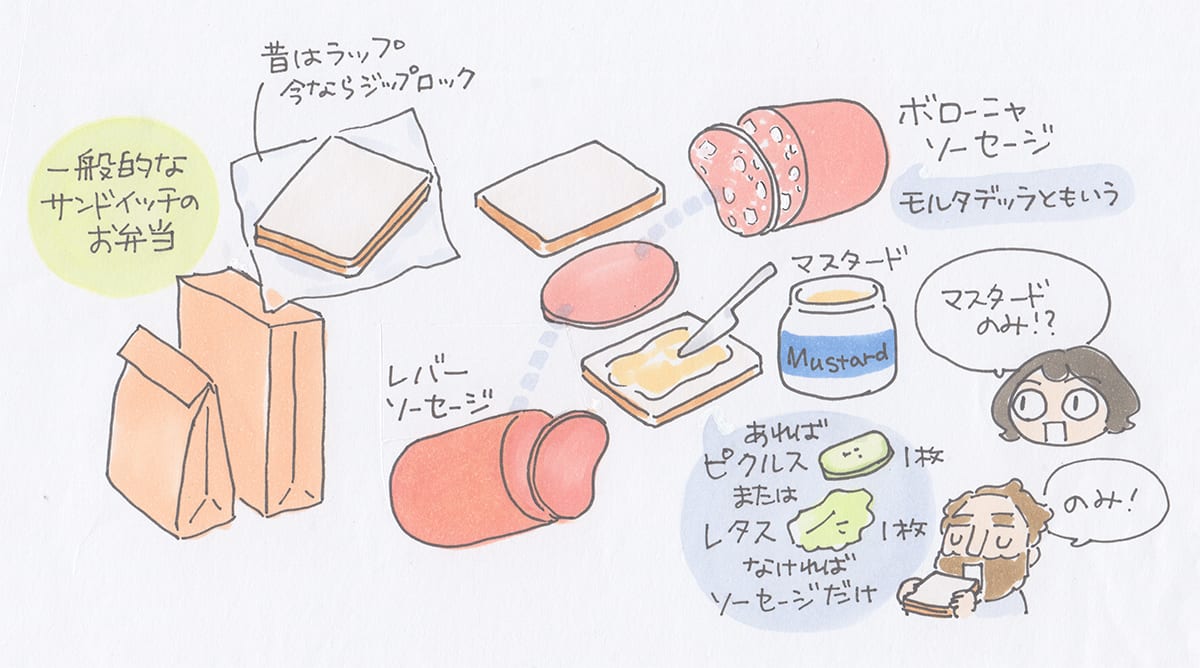 昔はラップ
今ならジップロック
一般的な
サンドイッチの
お弁当
ボローニャ
ソーセージ
モルタデッラともいう
マスタード
Mustard
マスタード
のみ!?
レバー
ソーセージ
あれば
ピクルス 1枚
または
レタス 1枚
なければ
ソーセージだけ
のみ!